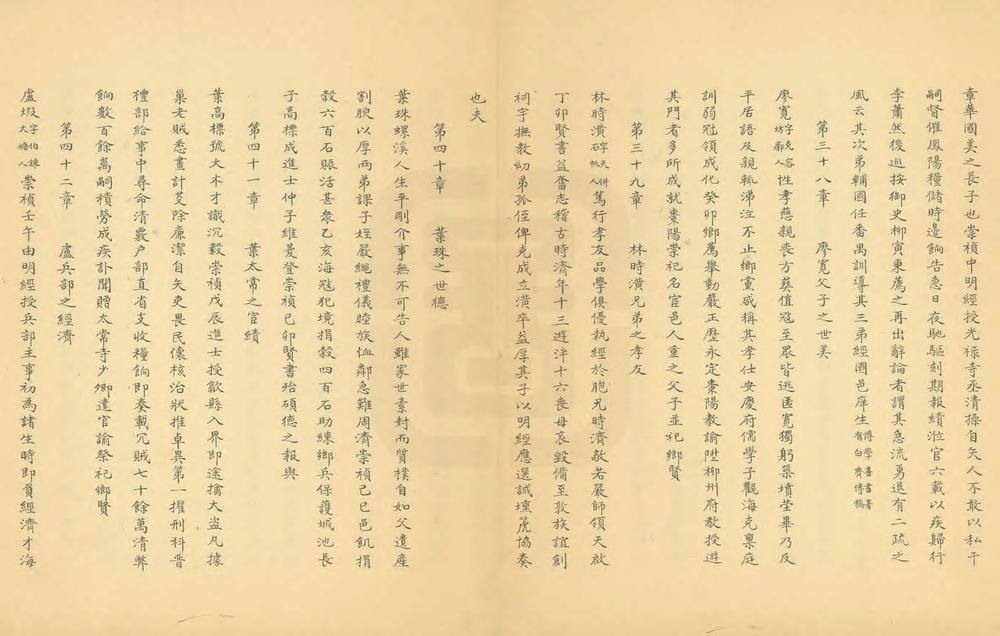 章華國美之長子也崇禎中明經授光祿寺丞清操自矢人不敢以私干
嗣督催鳳陽糧儲時邊餉告急日夜馳驅刻期報績涖官六載以疾歸行
李蕭然後巡按御史柳寅東薦之再出辭論者謂其急流勇退有二疏之
風云其次弟輔國任番禺訓導其三弟經國邑庠生博學善書書有白齊傳稿
第三十八章 廖寬父子之世美
廖寬字克容坊廓人性孝慈親喪方葬值寇至眾皆逃匿寬獨躬築墳塋畢乃反
平居語及親輒涕泣不止鄉黨咸稱其孝仕安慶府儒學子觀海克稟庭
訓弱冠領成化癸卯鄉薦舉動嚴正歷永定棗陽教諭陞柳州府教授遊
其門者多所成就棗陽崇祀名宦邑人重之父子並祀鄉賢
第三十九章 林時潢兄弟之孝友
林時潢字天石帆人併篤行孝友品學俱優執經於胞兄時濟敬若嚴師領天啟
丁卯賢書益奮志稽古時濟年十三遊泮十六喪母哀毀備至敦族誼創
祠宇撫教幼弟孤侄俾克成立潢卒益厚其子以明經應選誠壎篪協奏
也夫
第四十章 葉珠之世德
葉珠螺溪人生平剛介事無不可告人雖家世素封而質樸自如父遺產
割腴以厚兩弟課子姪嚴繩禮儀睦族恤鄰急難周濟崇禎己巳邑飢捐
穀六百石賑活甚衆乙亥海寇犯境捐穀四百石助練鄉兵保護城池長
子高標成進士仲子維菱登崇禎己卯賢書殆碩德之報與
第四十一章 葉太常之宦績
葉高標號大木才識沉毅崇禎戊辰進士授歙縣入界即途擒大盜凡據
巢老賊悉畫計芟除廉潔自矢吏畏民懷核治狀推卓異第一擢刑科晋
禮部給事中尋命清覈户部直省支收糧餉即奏載冗賊七十餘萬清弊
餉數百餘萬嗣積勞成疾訃聞贈太常寺少卿遣官諭祭祀鄉賢
第四十二章 盧兵部之經濟
盧煆字伯鍊大塘人崇禎壬午由明經授兵部主事初為諸生時即負經濟才海